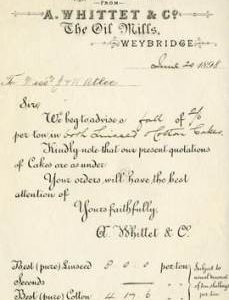 FROM
A. WHITTET & Co.
The Oil Mills,
WEYBRIDGE.
June 20 1898
To Messrs
Sirs
We beg to advise a fall of
per ton in both Linseed & Cotton Cakes.
Kindly note that our present quotations
of Cakes are as under
Your orders will have the best
attention of
Yours faithfully,
A. Whittet & Co.
Best (pure) Linseed 8 0 0 per ton
Seconds
Best (pure) Cotton 4 17 6
Subject to